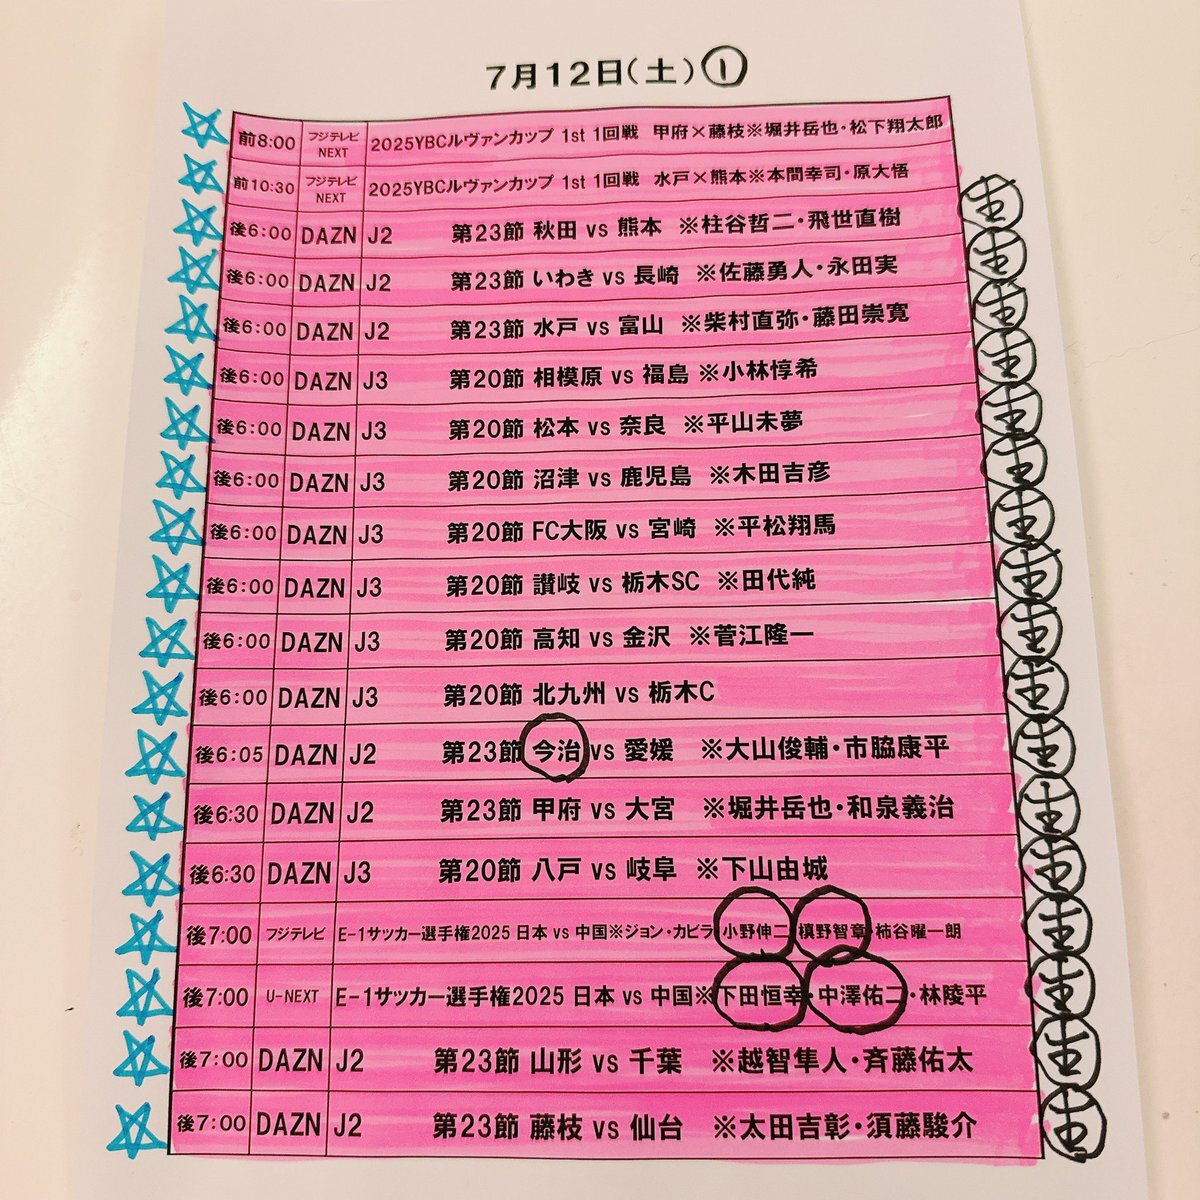 7月12日(土)①
前8:00 フジテレビNEXT 2025YBCルヴァンカップ 1st 1回戦 甲府×藤枝※堀井岳也・松下翔太郎
前10:30 フジテレビNEXT 2025YBCルヴァンカップ 1st 1回戦 水戸×熊本※本間幸司・原大悟
後6:00 DAZN J2 第23節 秋田 vs 熊本 ※柱谷哲二・飛世直樹 生
後6:00 DAZN J2 第23節 いわき vs 長崎 ※佐藤勇人・永田実 生
後6:00 DAZN J2 第23節 水戸 vs 富山 ※柴村直弥・藤田崇寛 生
後6:00 DAZN J3 第20節 相模原 vs 福島 ※小林惇希 生
後6:00 DAZN J3 第20節 松本 vs 奈良 ※平山未夢 生
後6:00 DAZN J3 第20節 沼津 vs 鹿児島 ※木田吉彦 生
後6:00 DAZN J3 第20節 FC大阪 vs 宮崎 ※平松翔馬 生
後6:00 DAZN J3 第20節 讃岐 vs 栃木SC ※田代純 生
後6:00 DAZN J3 第20節 高知 vs 金沢 ※菅江隆一 生
後6:00 DAZN J3 第20節 北九州 vs 栃木C 生
後6:05 DAZN J2 第23節 今治 vs 愛媛 ※大山俊輔・市脇康平 生
後6:30 DAZN J2 第23節 甲府 vs 大宮 ※堀井岳也・和泉義治 生
後6:30 DAZN J3 第20節 八戸 vs 岐阜 ※下山由城 生
後7:00 フジテレビ E-1サッカー選手権2025 日本 vs 中国※ジョン・カビラ・小野伸二・槙野智章・柿谷曜一朗 生
後7:00 U-NEXT E-1サッカー選手権2025 日本 vs 中国※下田恒幸・中澤佑二・林陵平 生
後7:00 DAZN J2 第23節 山形 vs 千葉 ※越智隼人・斉藤佑太 生
後7:00 DAZN J2 第23節 藤枝 vs 仙台 ※太田吉彰・須藤駿介 生